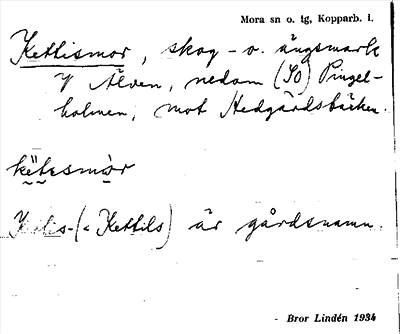 Mora sn o. tg, Kopparb. l.
Kettismor, skog- o. ängsmark
V Älven, nedom (SO) Pingel-
holmen, mot Hedgårdsbäcken.
kätesmòr
-(< Kettils) är gårdsnamn.
- Bror Lindén 1934